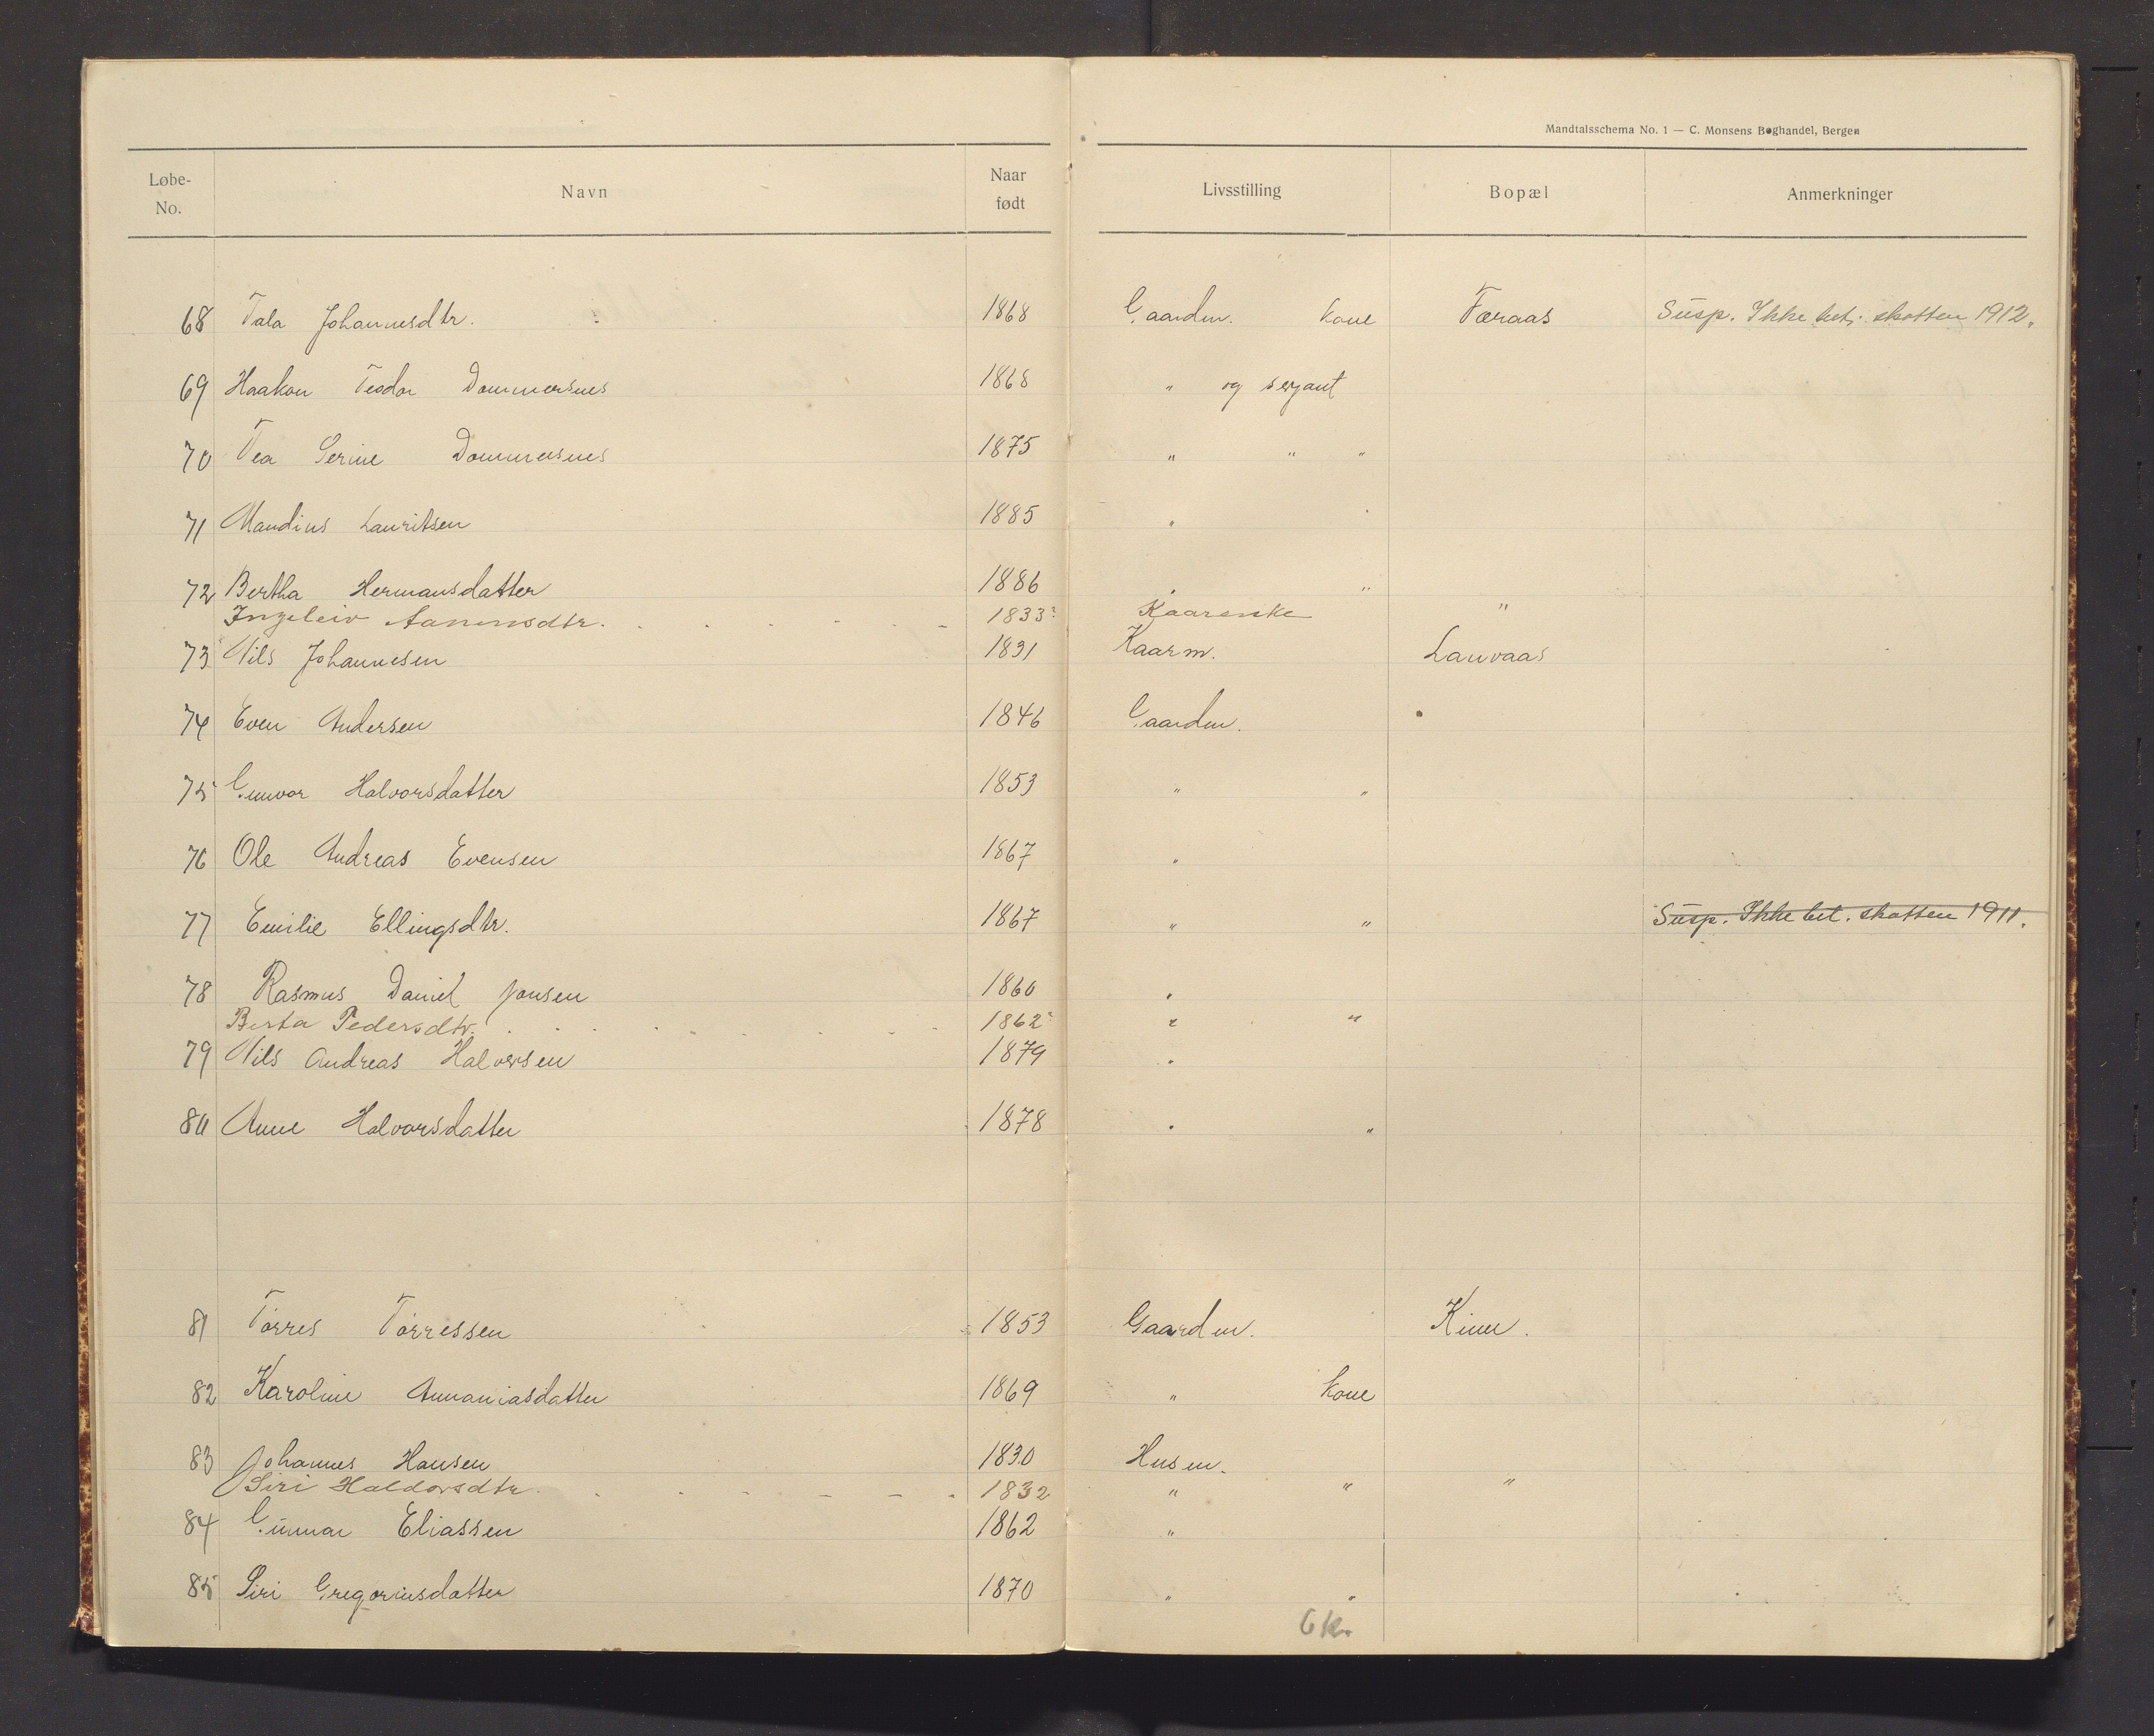 Mandtalsschema No. 1 — C. Monsens Boghandel, Bergen
Løbe-No. Navn Naar født Livsstilling Bopæl Anmerkninger
68 Tala Johannesdtr. 1868 Gaardm. kone Færaas Susp. Ikke bet. skatten 1912.
69 Haakon Teodor Dommersnes 1868 " og serjant
70 Tea Serine Dommersnes 1875 " " "
71 Mandius Lauritsen 1885 "
72 Bertha Hermansdatter 1886 " "
Ingeleiv Aanensdtr. 1833 Kaarenke "
73 Nils Johannesen 1831 Kaarm. Lauvaas
74 Even Andersen 1846 Gaardm.
75 Gunvor Halvorsdatter 1853 " "
76 Ole Andreas Evensen 1867 "
77 Emilie Ellingsdtr. 1867 " " Susp. Ikke bet. skatten 1911.
78 Rasmus Daniel Jonsen 1860 "
Berta Pedersdtr. 1862 " "
79 Nils Andreas Halvorsen 1879 "
80 Anne Halvorsdatter 1878 " "
81 Torres Torressen 1853 Gaardm. Kinn.
82 Karoline Annaniasdatter 1869 " kone
83 Johannes Hansen 1830 Husm.
Siri Haldorsdtr. 1832 " " "
84 Gunnar Eliassen 1862 "
85 Siri Gregoriusdatter 1870 " "
6 kr.